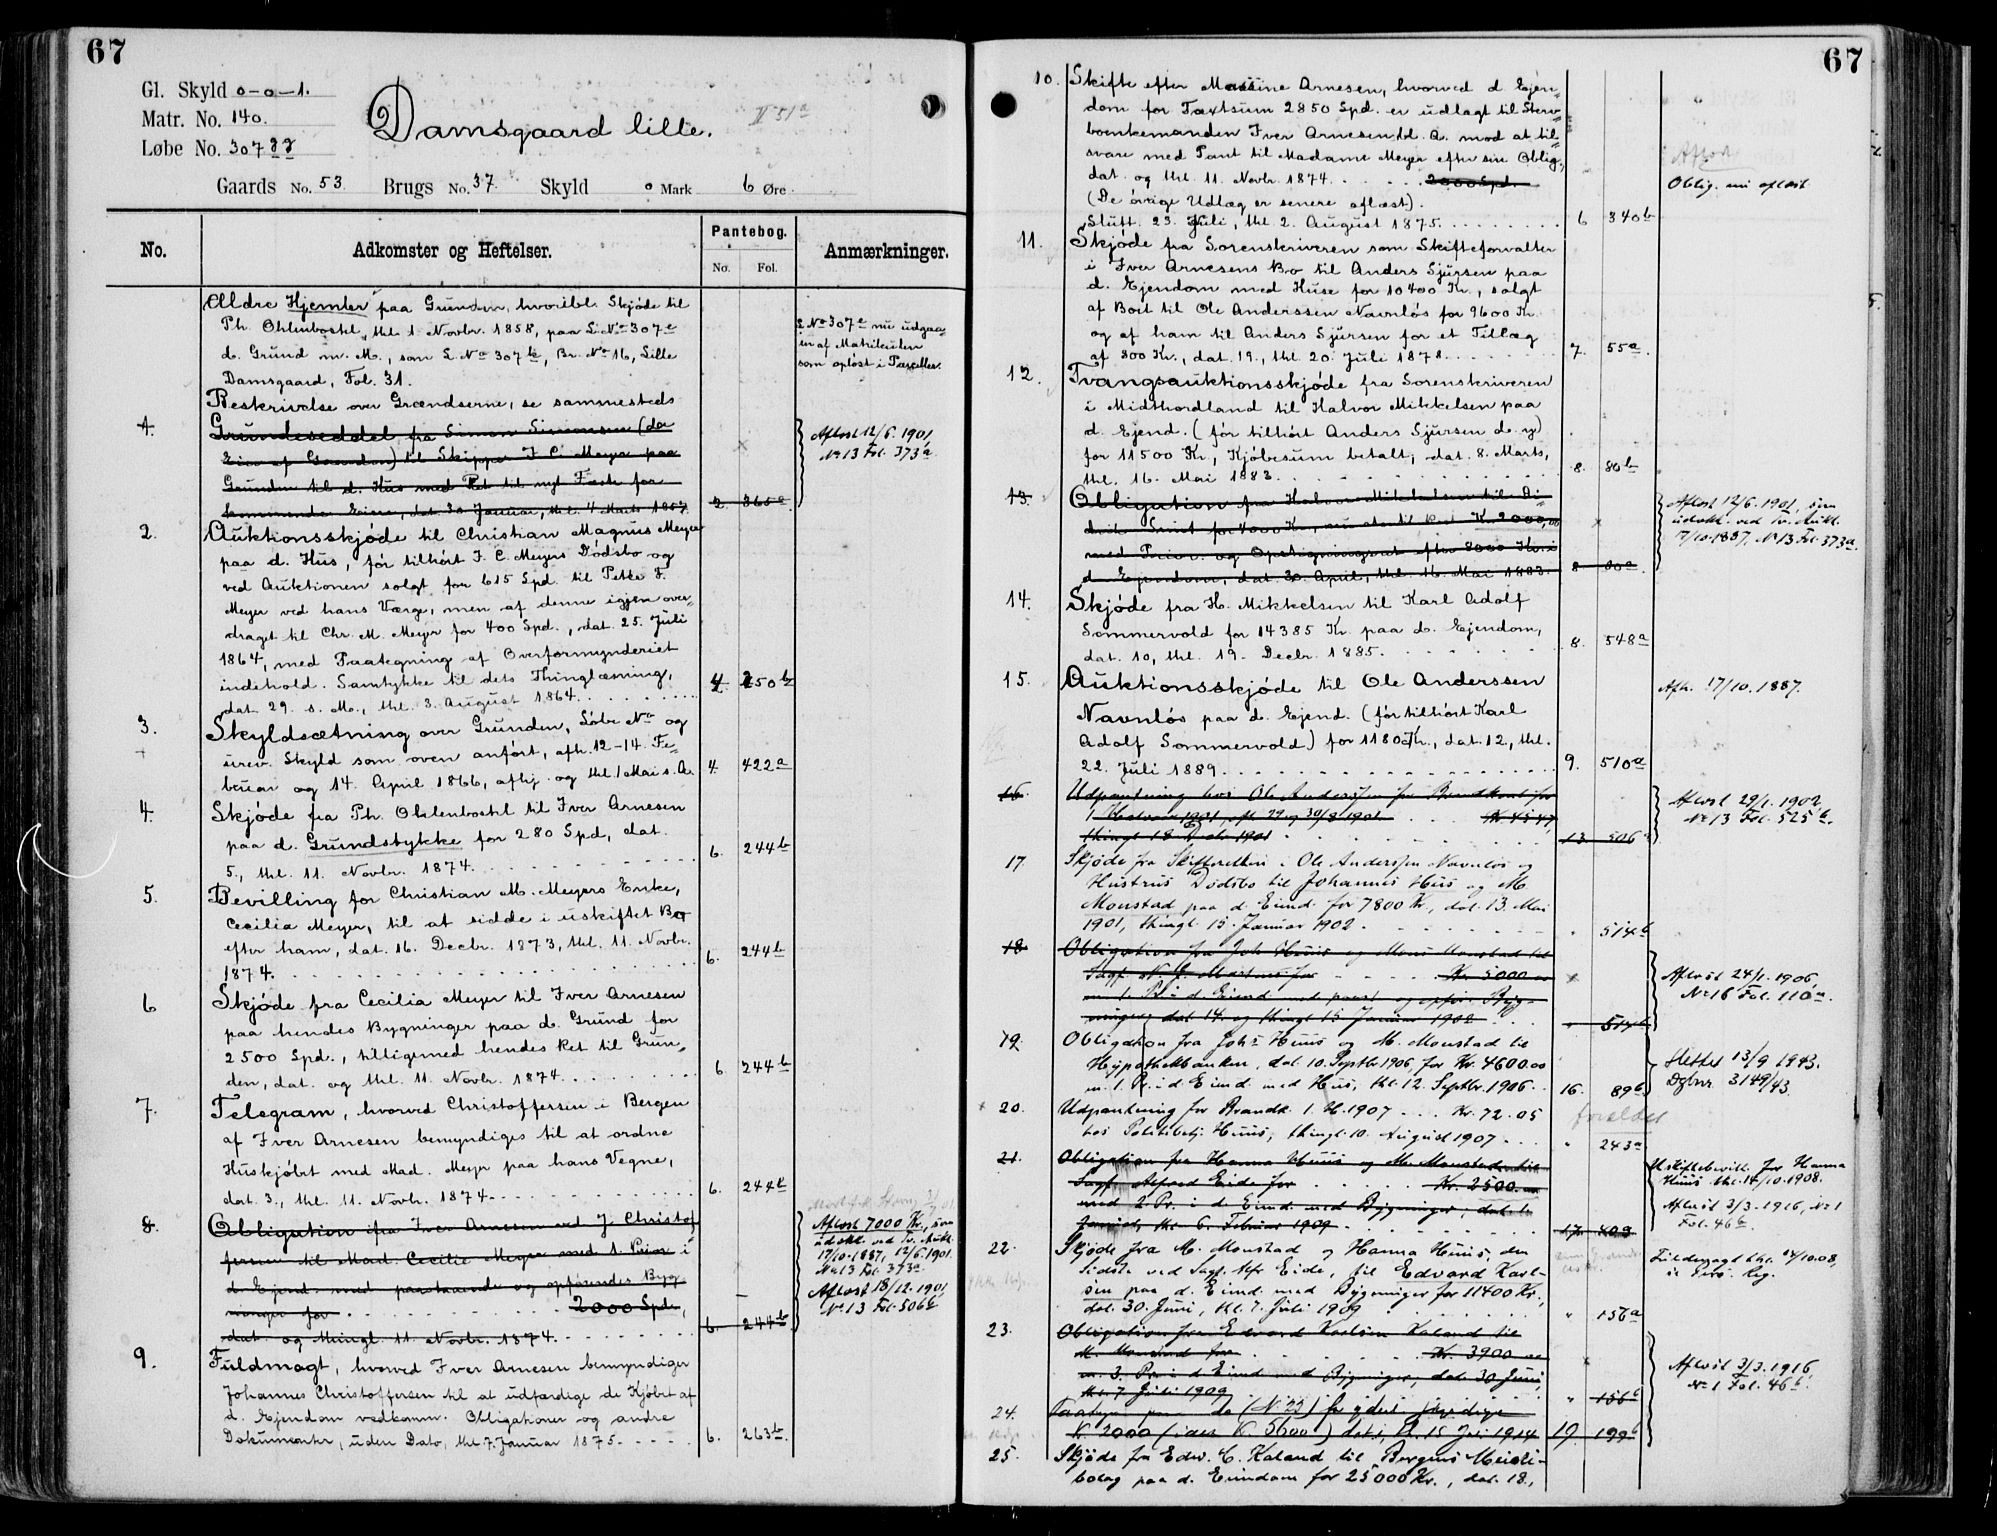 67
Gl. Skyld 0-0-1.
Matr. No. 140.
Løbe No. 307
Damsgaard lille.
Gaards No. 53 Brugs No. 37 Skyld 0 Mark 6 Øre
No.
Adkomster og Heftelser.
Pantebog.
No. Fol.
Anmærkninger.
Ældre Hjemler paa Grunden, hvoribl. Skjøde til
Ph. Ohlenbostel, thl. 1 Novbr. 1858, paa L. No 307e
d. Grund m. M., som L No 307k, Br. No 16, Lille
Damsgaard, Fol. 31.
L No 307e nu udgaa-
en af Matrikulen
som opløst i Parceller.
Beskrivelse over Grændserne, se sammesteds
1. Grundeseddel fra Simon Simonsen (da
Eier af Gaarden) til Skipper J C Meyer paa
Grunden til d. Hus med Ret til nyt Feste for
kommende Eiere, dat. 30 Januar, thl. 4 Marts 1857. 2 365a
Afløst 12/6. 1901,
No 13 Fol. 373a.
2. Auktionsskjøde til Christian Magnus Meyer
paa d. Hus, før tilhørt J. C. Meyers Dødsbo og
ved Auktionen solgt for 615 Spd. til Petke F.
Meyer ved hans Værge, men af denne igjen over-
draget til Chr. M. Meyer for 400 Spd., dat. 25. Juli
1864, med Paategning af Overformynderiet
indehold. Samtykke til dets Thinglæsning,
dat. 29. s. M., thl. 3. August 1864. 4 250b
3. Skyldsætning over Grunden, Løbe No og
urev. Skyld som oven anført, afh. 12-14. Fe-
bruar og 14. April 1866, afhj. og thl. 1 Mai s. A. 4. 422a
4. Skjøde fra Ph. Ohlenbostel til Iver Arnesen
paa d. Grundstykke for 280 Spd, dat.
5., thl. 11. Novbr. 1874. 6. 244b
5. Bevilling for Christian M. Meyers Enke,
Cecilia Meyer, til at sidde i uskiftet Bo
efter ham, dat. 16. Decbr. 1873, thl. 11. Novbr.
1874. 6. 244b
6 Skjøde fra Cecilia Meyer til Iver Arnesen
paa hendes Bygninger paa d. Grund for
2500 Spd., tilligemed hendes Ret til Grun-
den, dat. og thl. 11. Novbr. 1874. 6. 244b
7. Telegram, hvorved Christoffersen i Bergen
af Iver Arnesen bemyndiges til at ordne
Huskjøbet med Mad. Meyer paa hans Vegne,
dat. 3., thl. 11. Novbr. 1874. 6. 244b
8. Obligation fra Iver Arnesen ved J. Christof-
fersen til Mad. Cecilie Meyer med 1. Prior. i
d. Ejend. med paastaaende og opførendes Byg-
ninger for 2000 Spd.,
dat. og thingl. 11. Novbr. 1874. 6. 244b
Afløst 7000 Kr., som
udslt. ved Tv. Aukt.
17/10.1887, 12/6.1901.
No 13 Fol. 373a.
Aflæst 18/12.1901,
No 13 Fol. 506b
9. Fuldmagt, hvorved Iver Arnesen bemyndiger
Johannes Christoffersen til at udfærdige de Kjøbet af
d. Ejendom vedkomm. Obligationer og andre
Dokumenter, uden Dato, thl 7. Januar 1875. 6. 263b.
67
10. Skifte efter Massine Arnesen, hvorved d Ejen-
dom for Taxtsum 2850 Spd. er udlagt til Sterv-
boenkemanden Iver Arnesen bl. A. mod at til-
svare med Pant til Madame Meyer efter sin Oblig,
dat. og thl. 11. Novbr. 1874. 2000 Spd.
(De øvrige Udlæg er senere aflæst).
Slutt. 23. Juli, thl. 2. August 1875. 6 340b
Oblig. nu aflæst
11. Skjøde fra Sorenskriveren som Skifteforvalter
i Iver Arnesens Bo til Anders Sjursen paa
d. Ejendom med Huse for 10400 Kr., solgt
af Boet til Ole Anderssen Navnløs for 9600 Kr.
og af ham til Anders Sjursen for et Tillæg
af 800 Kr., dat. 19., thl. 20. Juli 1878. 7. 55a.
12. Tvangsauktionsskjøde fra Sorenskriveren
i Midthordland til Halvor Mikkelsen paa
d. Ejend. (før tilhørt Anders Sjursen de. y)
for 11500 Kr., Kjøbesum betalt, dat. 8. Marts,
thl. 16. Mai 1883. 8. 80b
13. Obligation fra Halvor Mikkelsen til Di-
Lund for 4000 Kr., Kr. 2000,00
med Prior. og Opstigningsret efter 8000 Kr. i
d Ejendom, dat. 30. April, thl. 16. Mai 1883. 8 80a
Aflæst 12/6. 1901, som
udslt. ved Tv. Aukt.
17/10.1887, No 13 Fol. 373a.
14. Skjøde fra H. Mikkelsen til Karl Adolf
Sommervold for 14385 Kr. paa d. Ejendom,
dat. 10, thl. 19. Decbr. 1885. 8. 548a
15. Auktionsskjøde til Ole Anderssen
Navnløs paa d. Ejend. (før tilhørt Karl
Adolf Sommervold) for 11800 Kr., dat. 12, thl.
22. Juli 1889. 9. 510a
Afh. 17/10. 1887.
16. Udpantning hos Ole Anderssen for Brandkont. for
1 Halvaar 1901, afh. 29 og 30/8 1901 Kr. 45,47,
thingl. 18 Decbr 1901 13 506
Aflæst 29/1. 1902,
No 13 Fol. 525b.
17. Skjøde fra Skifteretten i Ole Anderssen Navnløs og
Hustrus Dødsbo til Johannes Huus og M.
Monstad paa d. Eiend. for 7800 Kr., dat. 13. Mai
1901, thingl. 15. Januar 1902. " 514b
18. Obligation fra Joh. Huus og Mons Monstad til
Sagf. N. J. Martens for Kr. 5000 00
m 1. Pr. i d Eiend. med paast. og opfør. Byg-
ninger, dat. 14. og thingl. 15 Januar 1902 " 514b
Aflæst 24/1. 1906,
No 16 Fol. 110a.
19. Obligation fra Johs Huus og M. Monstad til
Hypothekbanken, dat. 10. Septbr 1906, for Kr. 4600.00
m. 1. Pr. i d Eiend. med Hus, thl. 12. Septbr. 1906. 16. 89b
Slettet 13/9 1943.
Dgbnr. 3149/43.
20. Udpantning for Brandk. 1. H. 1907 Kr. 72.05
hos Politibetj. Huus, thingl. 10. August 1907 " 243a
foreldet
21. Obligation fra Hanna Huus og M. Monstad til
Sagf. Alfred Eide for Kr. 2500.00
med 2 Pr. i d Eiend. med Bygninger, dat. 1.
Januar, thl. 6. Februar 1909 17. 409
Uskiftebevill. for Hanna
Huus thl. 14/10. 1908.
Aflæst 3/3. 1916, No 1
Fol. 46b.
22. Skjøde fra M. Monstad og Hanna Huus, den
sidste ved Sagf. Alfr Eide, til Edvard Karl-
sen paa d. Eiend. med Bygninger for 11400 Kr.,
dat. 30. Juni, thl. 7. Juli 1909 " 156a
23. Obligation fra Edvard Karlsen Kaland til
M. Monstad for Kr. 3900 00
m. 3. Pr. i d Eiend med Bygninger, dat. 30 Juni,
thl. 7 Juli 1909 " 156b
Aflæst 3/3. 1916,
No 1 Fol. 46b.
24. Paategn. paa do (N. 23) for ydert.
K. 2000 ( K. 5600) dat. , 15 Juli 1914 19 199b
25. Skjøde fra Edv. C. Kaland til Bergens Meieri-
bolag paa d. Eiendom for 25000 Kr., dat. 18.,